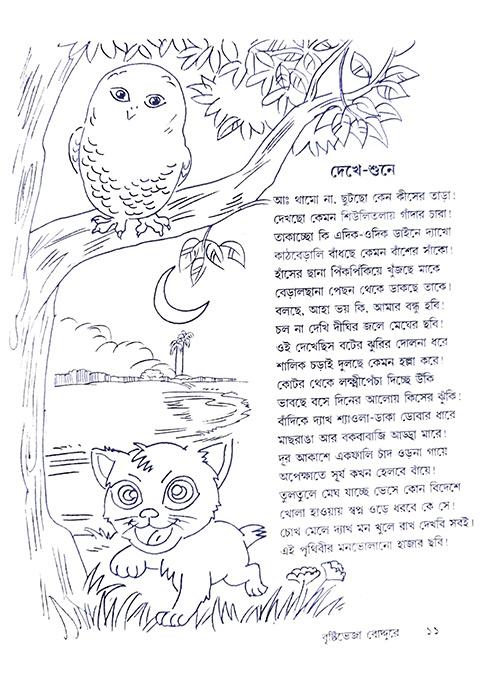 দেখে-শুনে
আঃ থামো না, ছুটছো কেন কীসের তাড়া!
দেখছো কেমন শিউলিতলায় গাঁদার চারা!
তাকাচ্ছো কি এদিক-ওদিক ডাইনে দ্যাখো
কাঠবেড়ালি বাঁধছে কেমন বাঁশের সাঁকো!
হাঁসের ছানা পিঁকপিঁকিয়ে খুঁজছে মাকে
বেড়ালছানা পেছন থেকে ডাকছে তাকে।
বলছে, আহা ভয় কি, আমার বন্ধু হবি!
চল না দেখি দীঘির জলে মেঘের ছবি!
ওই দেখেছিস বটের ঝুরির দোলনা ধরে
শালিক চড়াই দুলছে কেমন হল্লা করে!
কোটর থেকে লক্ষ্মীপেঁচা দিচ্ছে উঁকি
ভাবছে বসে দিনের আলোয় কিসের ঝুঁকি!
বাঁদিকে দ্যাখ শ্যাওলা-ঢাকা ডোবার ধারে
মাছরাঙা আর বকবাবাজি আড্ডা মারে!
দূর আকাশে একফালি চাঁদ ওড়না গায়ে
অপেক্ষাতে সূর্য কখন হেলবে বাঁয়ে!
তুলতুলে মেঘ যাচ্ছে ভেসে কোন বিদেশে
খোলা হাওয়ায় স্বপ্ন ওড়ে ধরবে কে সে!
চোখ মেলে দ্যাখ মন খুলে রাখ দেখবি সবই।
এই পৃথিবীর মনভোলানো হাজার ছবি!
বৃষ্টিভেজা রোদ্দুরে ১১